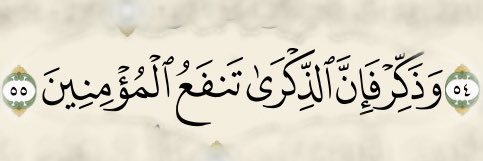 ٥٤ وَذَكِّرۡ فَإِنَّ ٱلذِّكۡرَىٰ تَنفَعُ ٱلۡمُؤۡمِنِينَ ٥٥